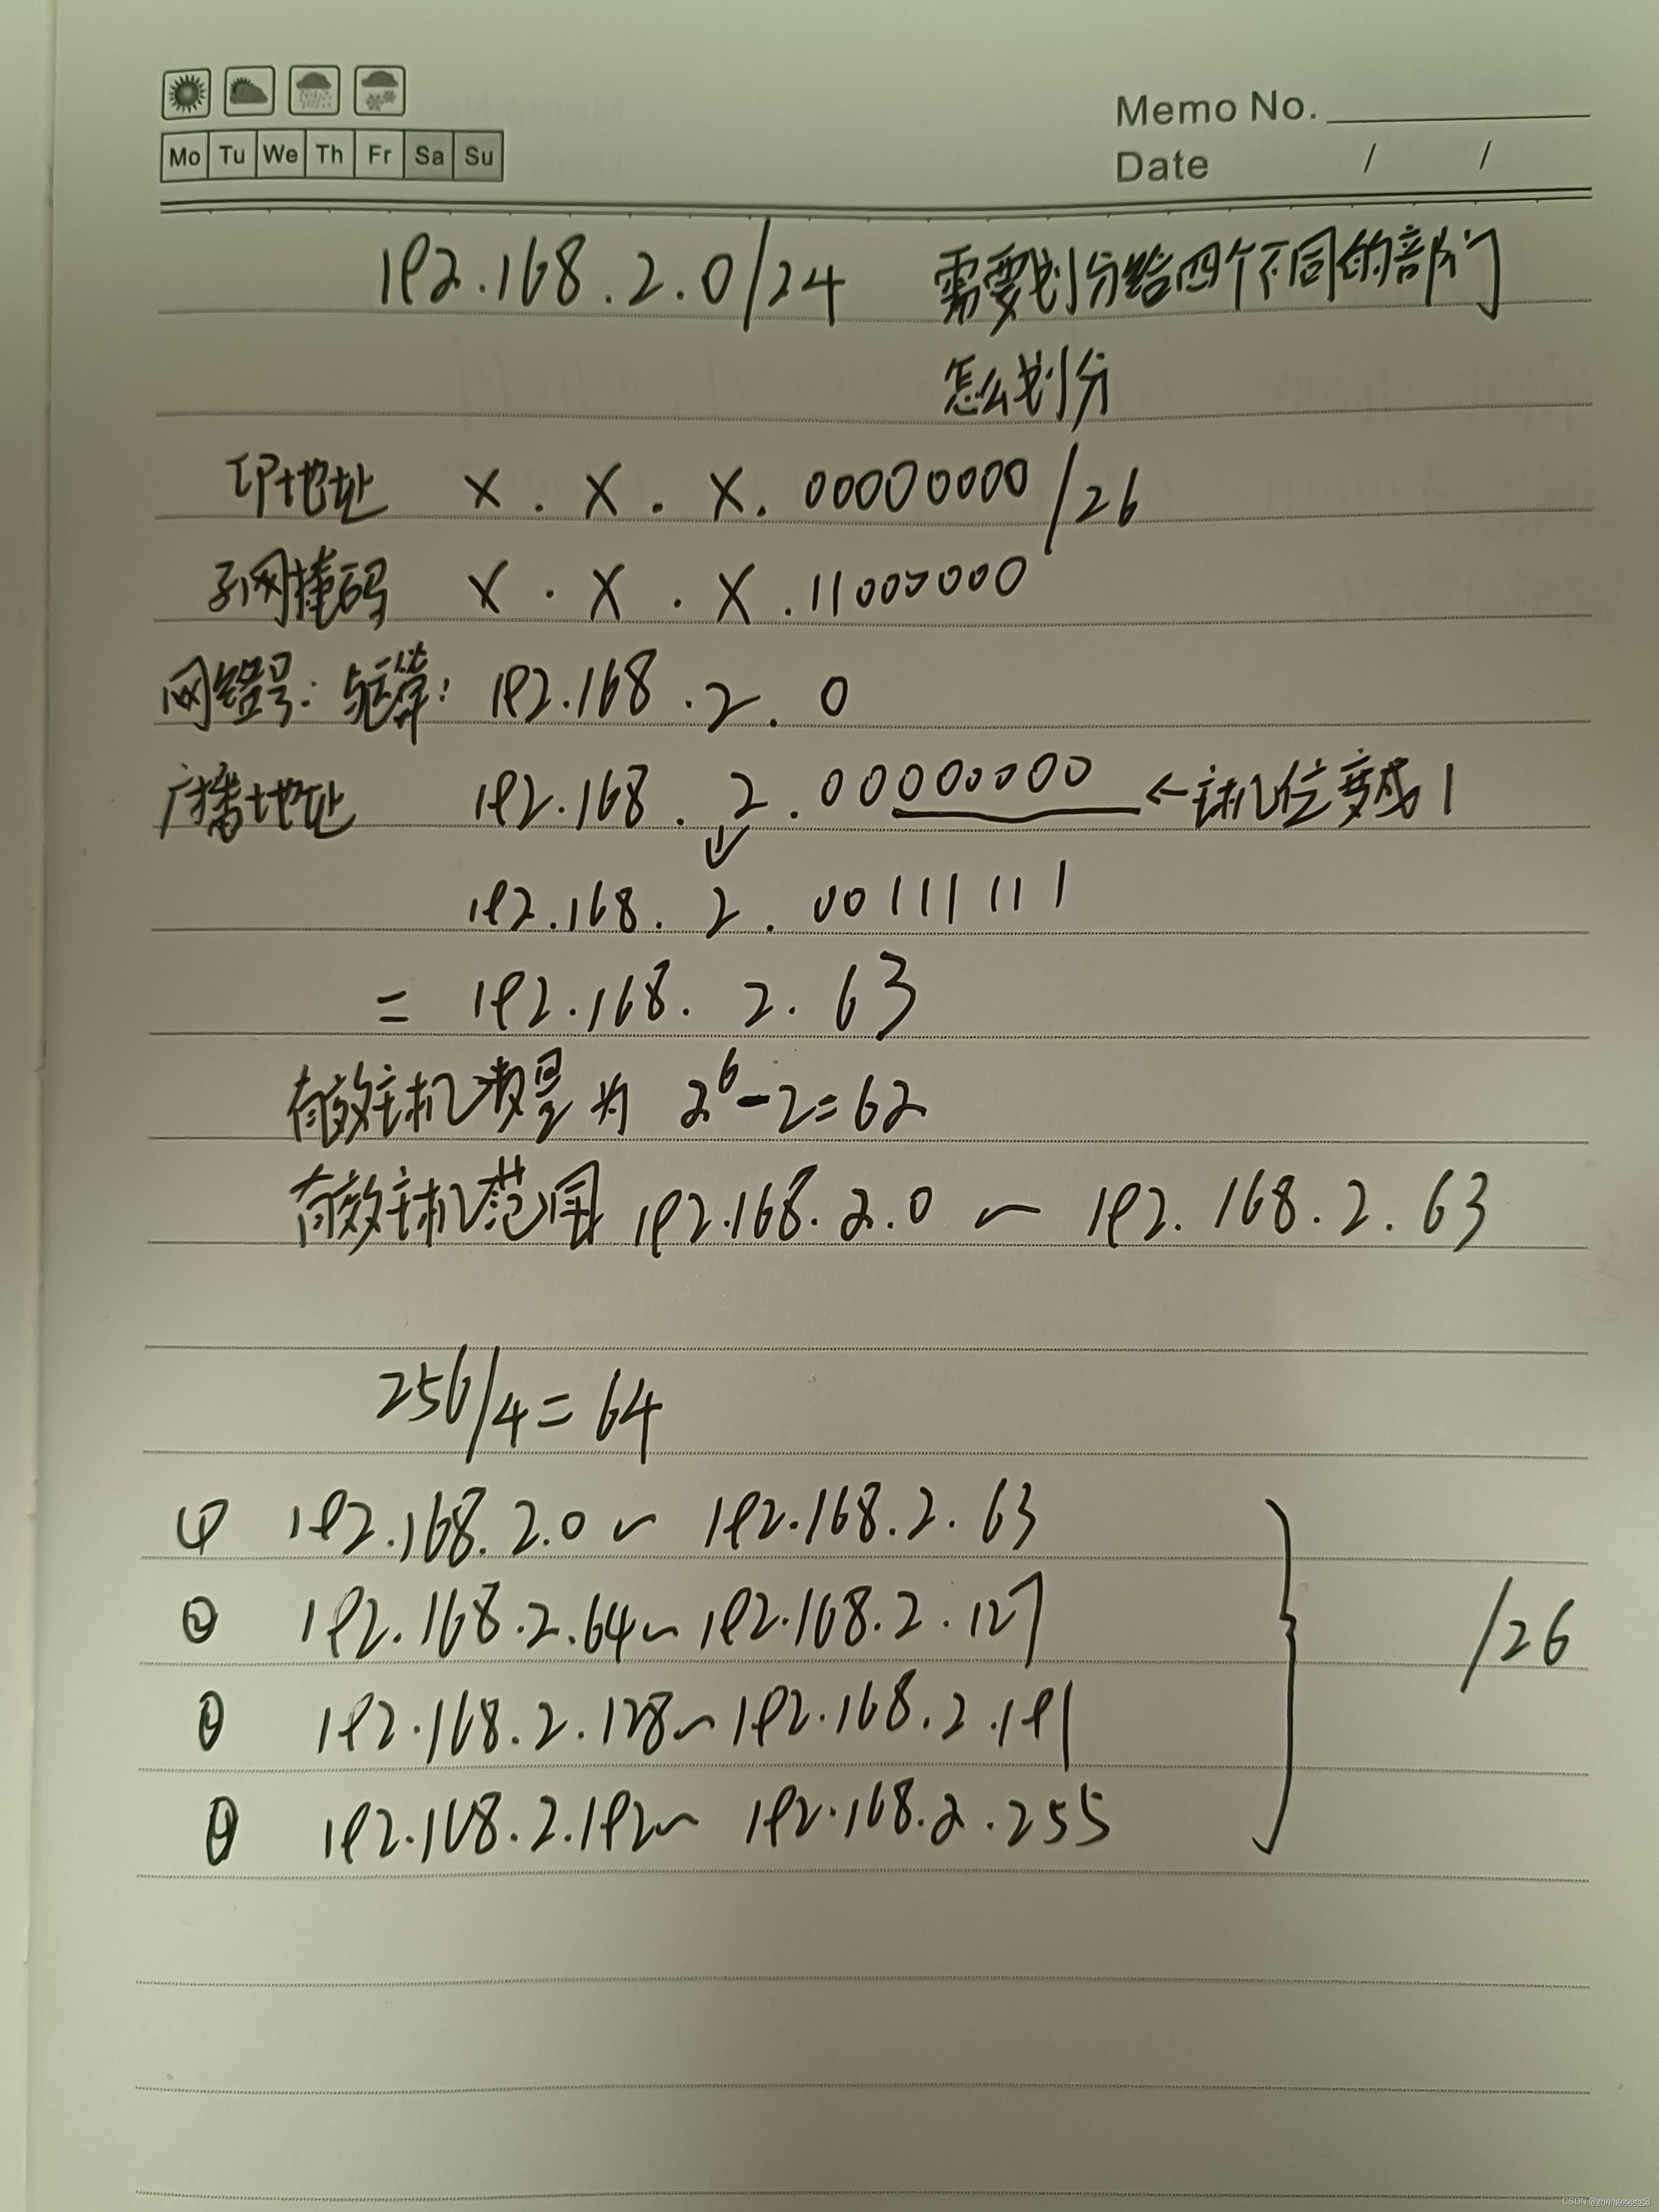 Memo No.
Mo Tu We Th Fr Sa Su
Date / /
192.168.2.0/24 需要划分给四个不同的部门
怎么划分
IP地址 X.X.X.00000000/26
子网掩码 X.X.X.11000000
网络号:与运算:192.168.2.0
广播地址 192.168.2.00000000 ←主机位变成1
192.168.2.00111111
= 192.168.2.63
有效主机数量为 2⁶-2=62
有效主机范围 192.168.2.0 ~ 192.168.2.63
256/4=64
① 192.168.2.0 ~ 192.168.2.63
② 192.168.2.64 ~ 192.168.2.127
/26
③ 192.168.2.128 ~ 192.168.2.191
④ 192.168.2.192 ~ 192.168.2.255